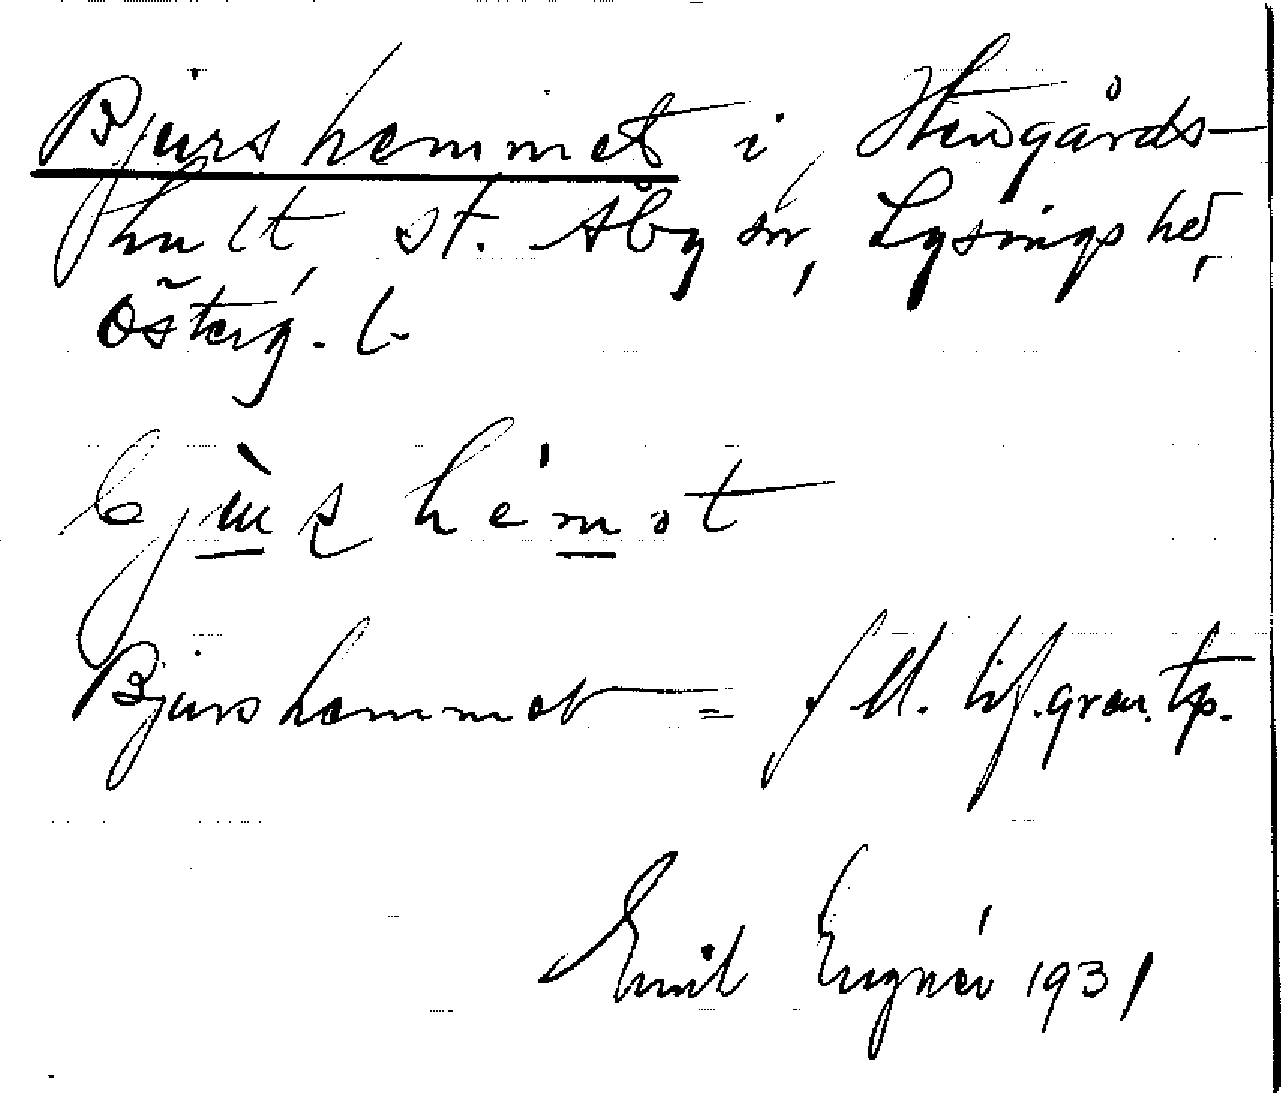 Bjurshemmet i Stengårds-
hult st. Åby sn, Lysings hd,
Österg. l.
Bjurshemmet = f.d. lif.gren. tp.
Emil Engnér 1931